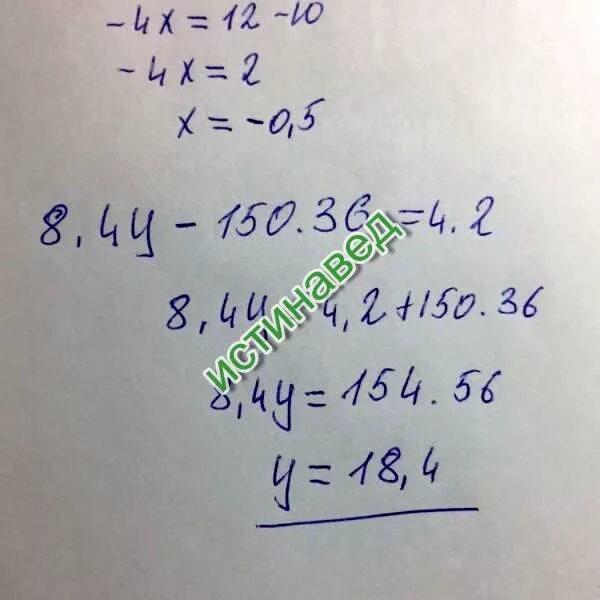 -4x = 12 - 10
-4x = 2
x = -0,5
8,4y - 150.36 = 4.2
8,4y 4,2 + 150.36
8,4y = 154.56
y = 18,4
истинавед